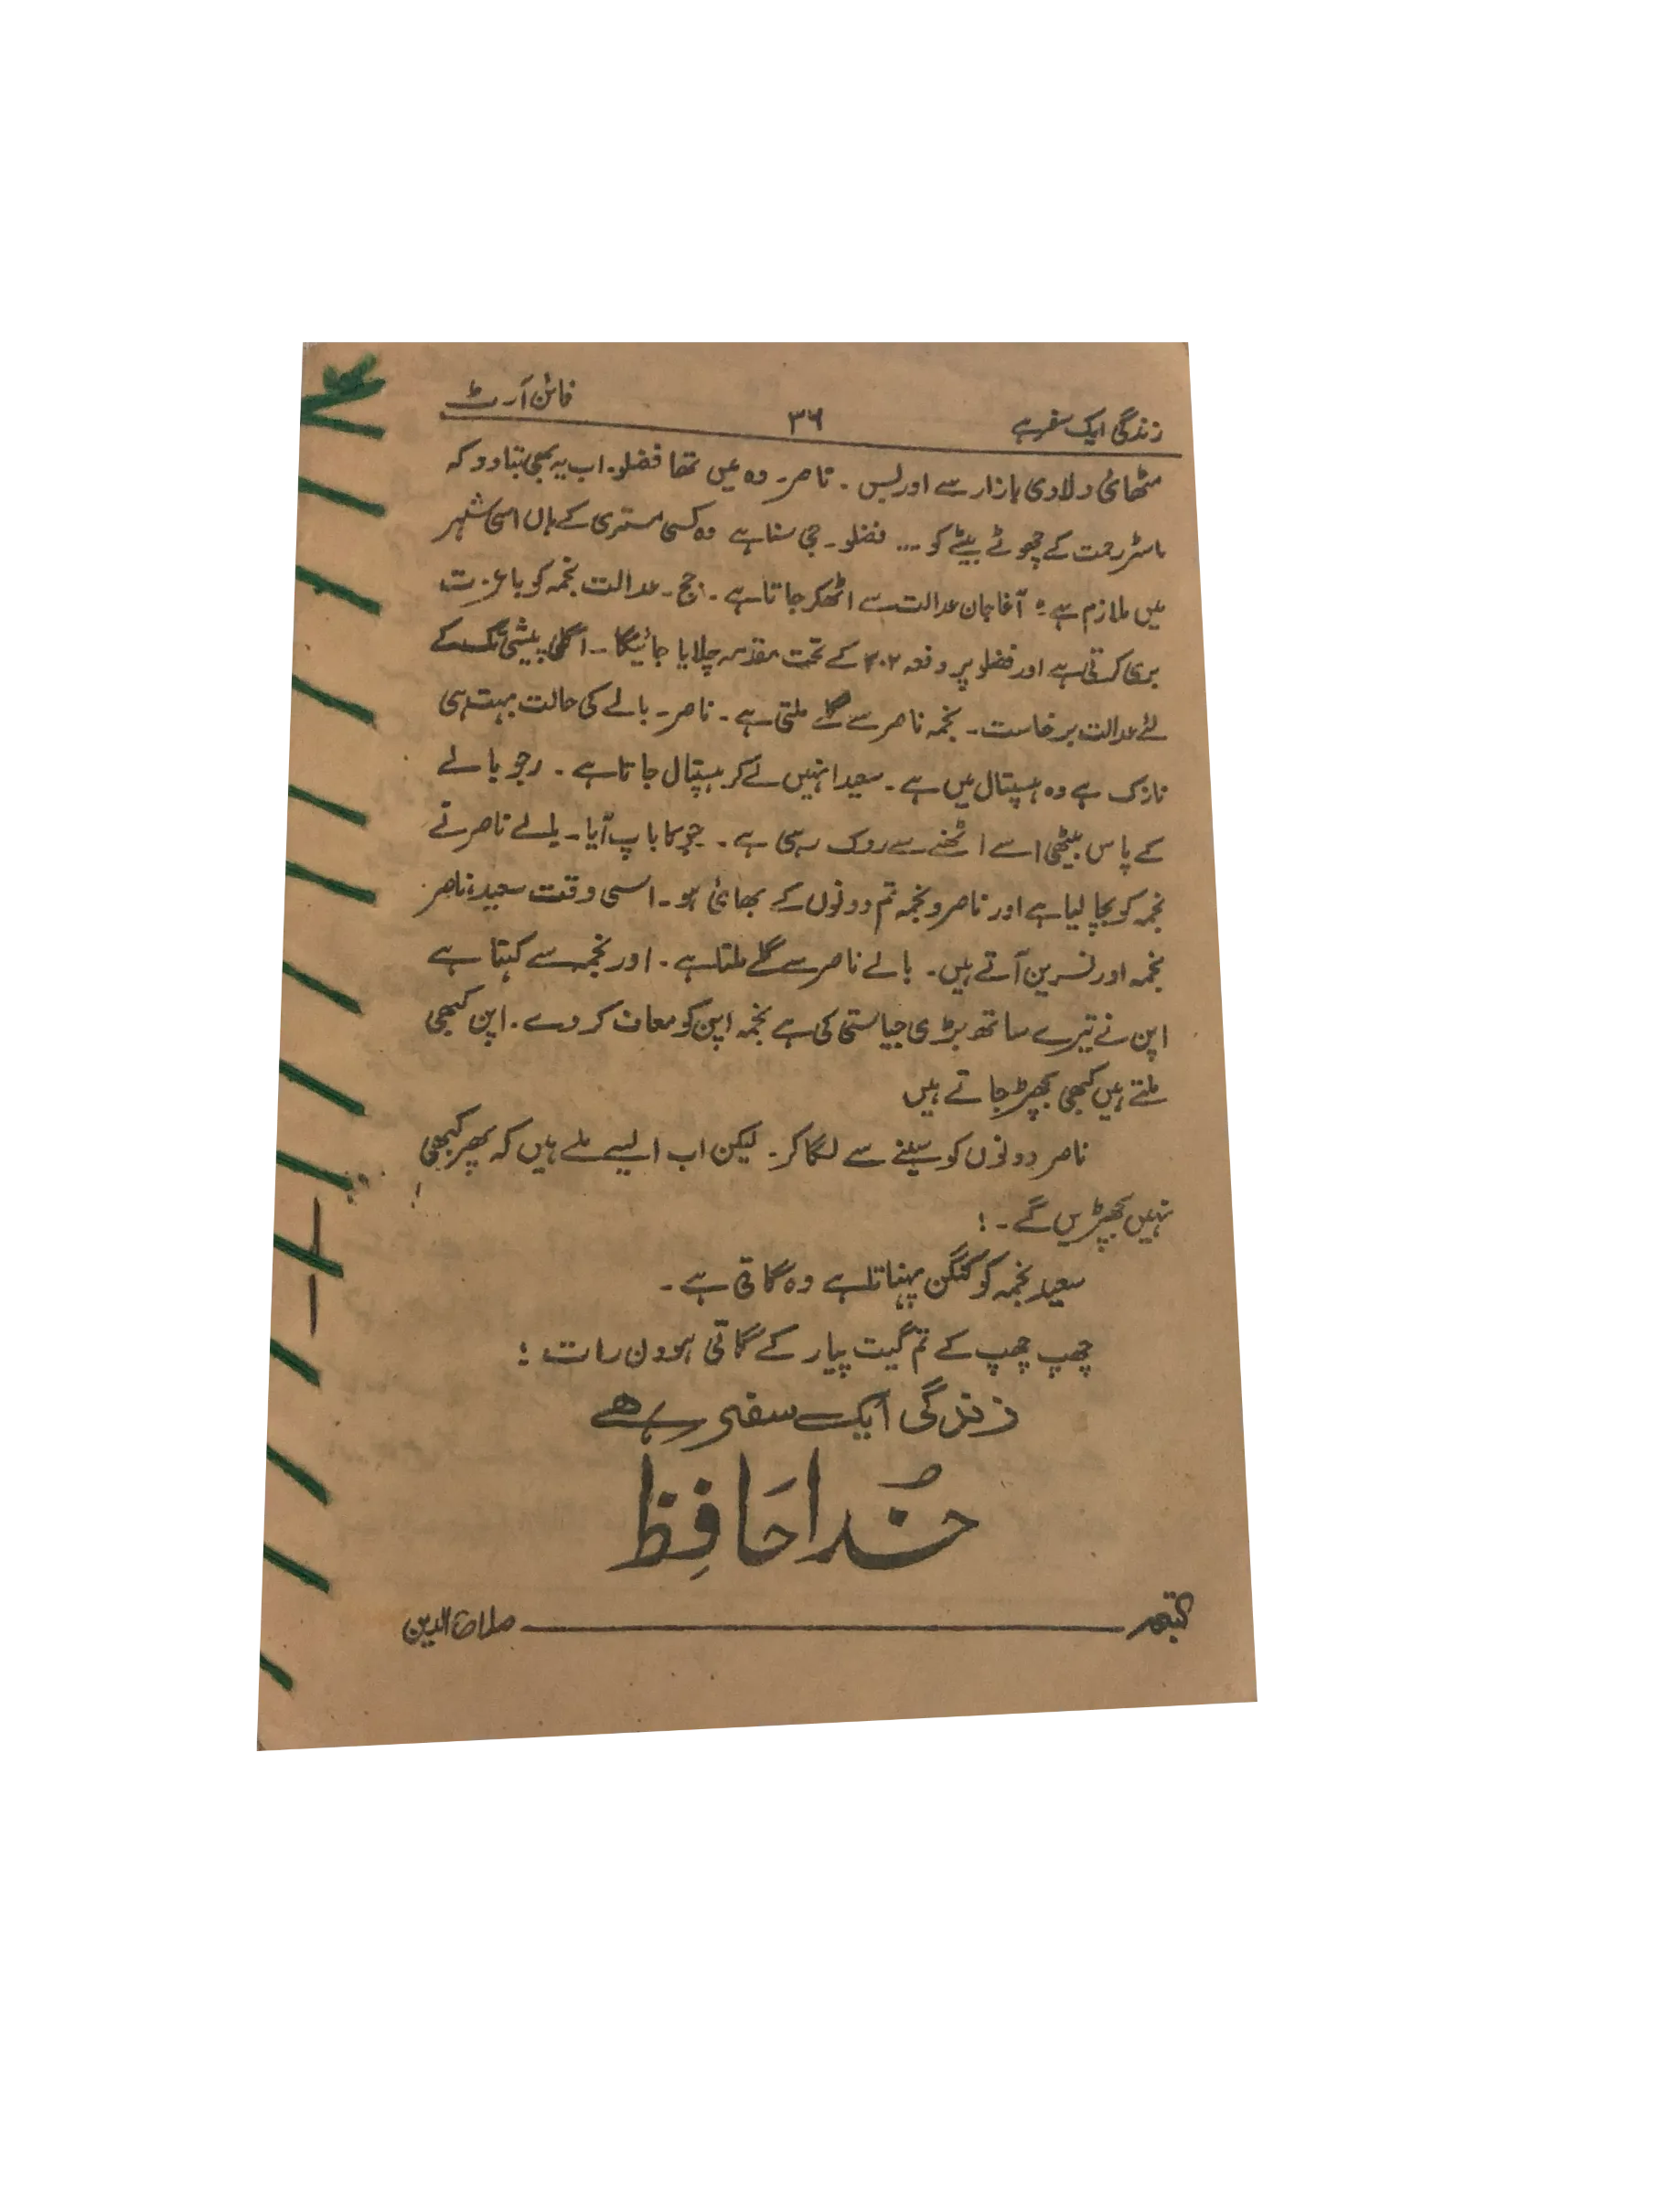 زندگی ایک سفر ہے ۳۶ فائن آرٹ
مٹھائی دلادی بازار سے اور بس ۔ ناصر۔ وہ میں تھا فضلو۔ اب یہ بھی بتا دو کہ
ماسٹر رحمت کے چھوٹے بیٹے کو ... فضلو۔ جی سنا ہے وہ کسی مستری کے ہاں اسی شہر
میں ملازم ہے؛ آغا جان عدالت سے اٹھکر جاتا ہے ۔ جج ۔ عدالت نجمہ کو باعزت
بری کرتی ہے اور فضلو پر دفعہ ۳۰۲ کے تحت مقدمہ چلایا جائیگا ۔ اگلی پیشی تک کے
لئے عدالت برخاست ۔ نجمہ ناصر سے گلے ملتی ہے ۔ ناصر۔ بالے کی حالت بہت ہی
نازک ہے وہ ہسپتال میں ہے ۔ سعید انہیں لے کر ہسپتال جاتا ہے ۔ رجو بالے
کے پاس بیٹھی اسے اٹھنے سے روک رہی ہے ۔ جو کا باپ آیا۔ بالے ناصر نے
نجمہ کو بچا لیا ہے اور ناصر و نجمہ تم دونوں کے بھائی ہو ۔ اسی وقت سعید، ناصر
نجمہ اور نسرین آتے ہیں ۔ بالے ناصر سے گلے ملتا ہے ۔ اور نجمہ سے کہتا ہے
اپن نے تیرے ساتھ بڑی جیاستی کی ہے نجمہ اپن کو معاف کر دے ۔ اپن کبھی
ملتے ہیں کبھی بچھڑ جاتے ہیں
ناصر دونوں کو سینے سے لگا کر۔ لیکن اب ایسے ملے ہیں کہ پھر کبھی
نہیں بچھڑیں گے ۔ !
سعید نجمہ کو کنگن پہناتا ہے وہ گاتی ہے ۔
چھپ چھپ کے تم گیت پیار کے گاتی ہو دن رات :
زندگی ایک سفر ہے
خُدا حَافِظ
صلاح الدین